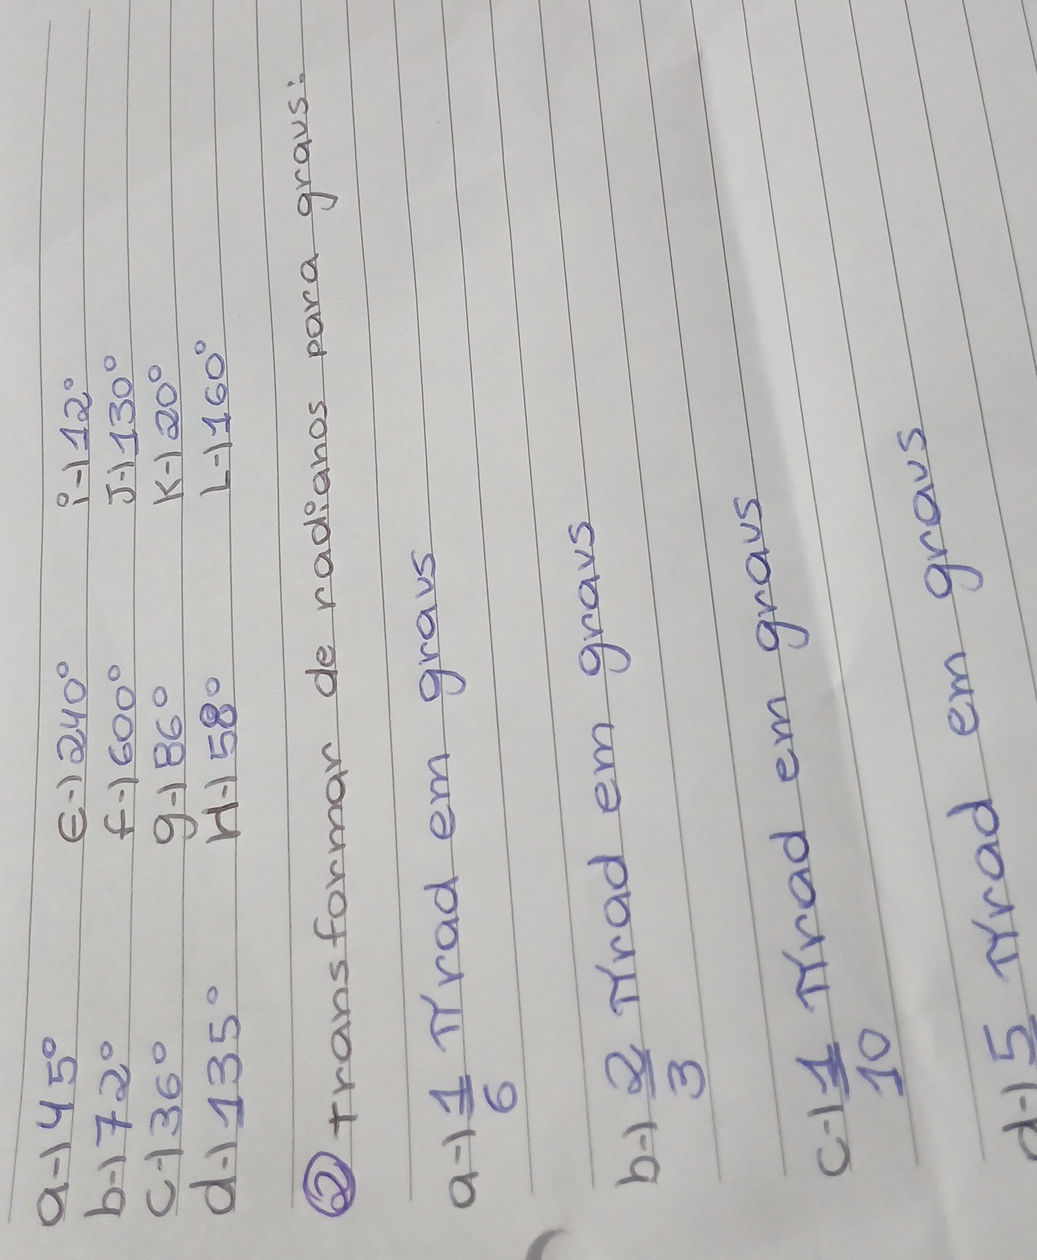 a-) 45° E-) 240° i-) 12°
b-) 72° f-) 600° J-) 130°
c-) 36° g-) 86° K-) 20°
d-) 135° H-) 58° L-) 160°
2 transformar de radianos para graus:
a-) 1/6 π rad em graus
b-) 2/3 π rad em graus
c-) 1/10 π rad em graus
d-) 5 π rad em graus